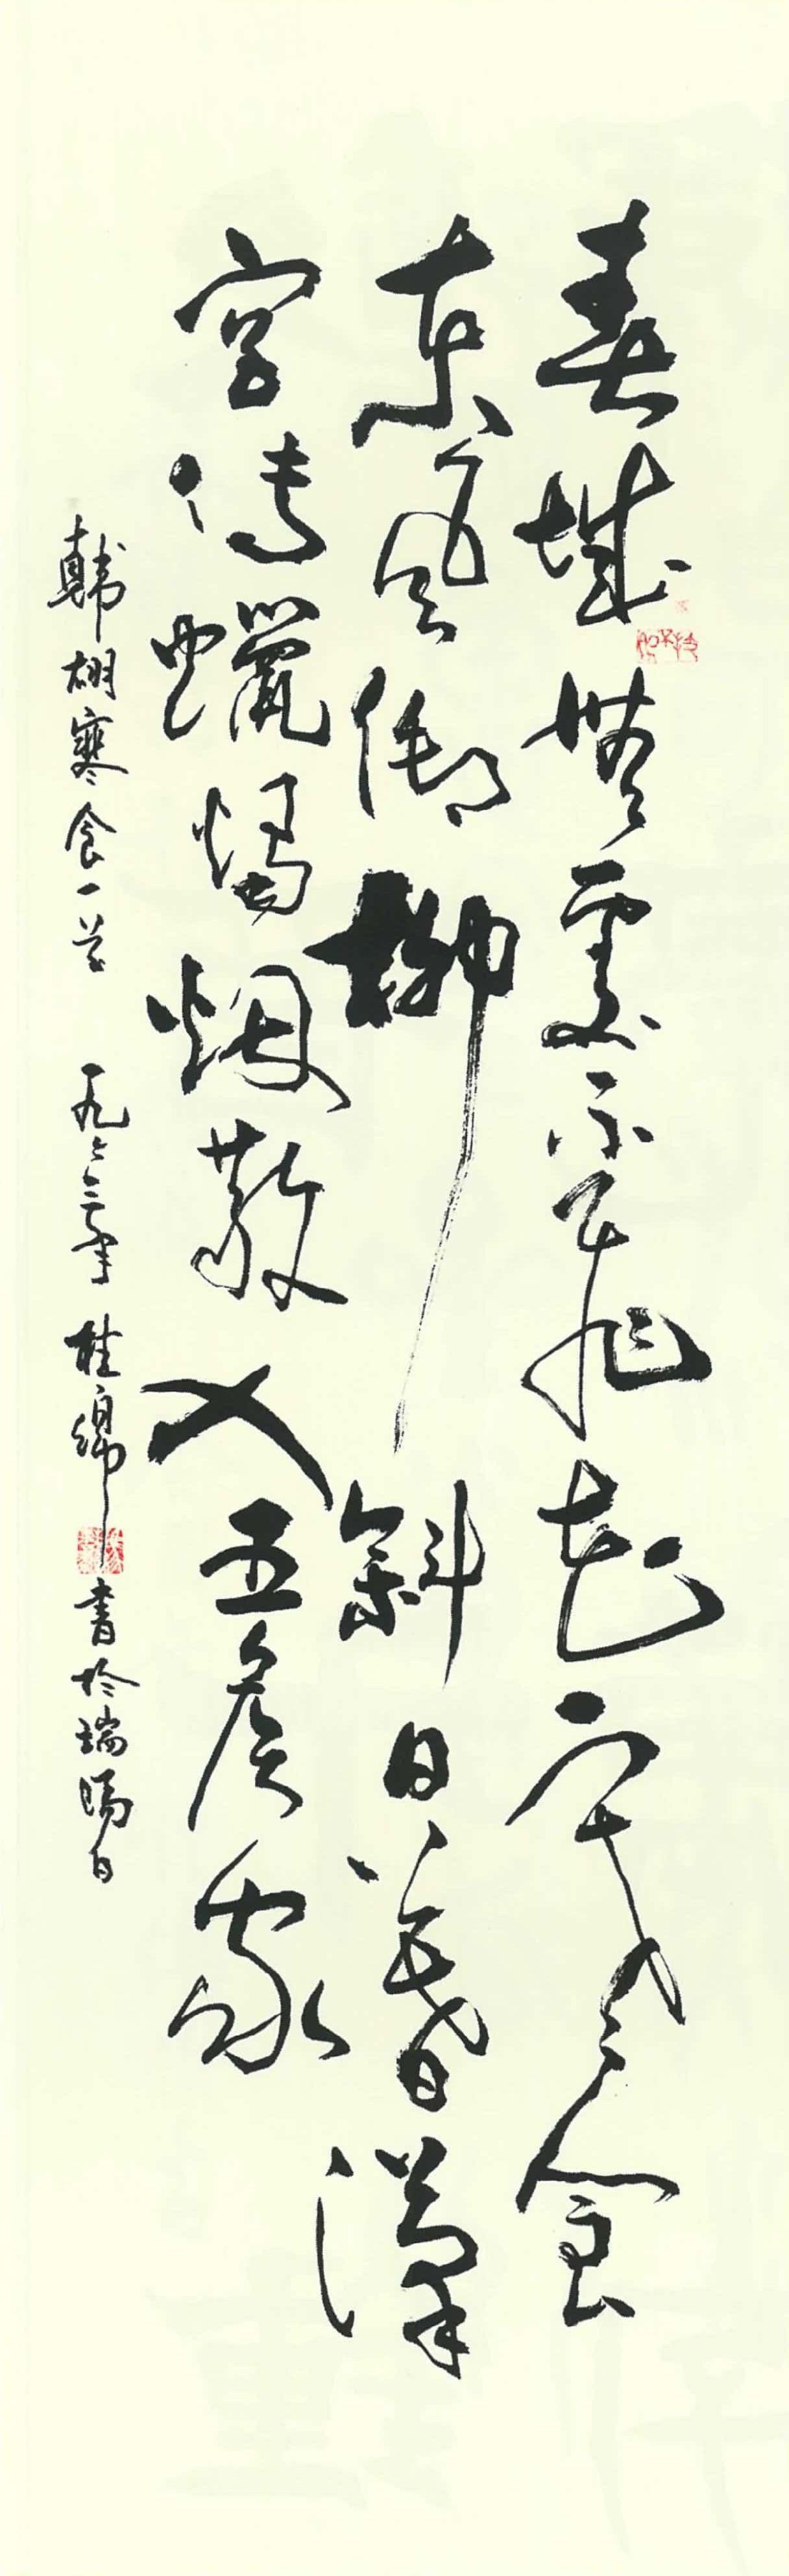 春城無處不飛花寒食
東風御柳斜日暮漢
宮傳蠟燭烟散入五侯家
韓翃寒食一首 一九七三年 桂綿 書於端陽日